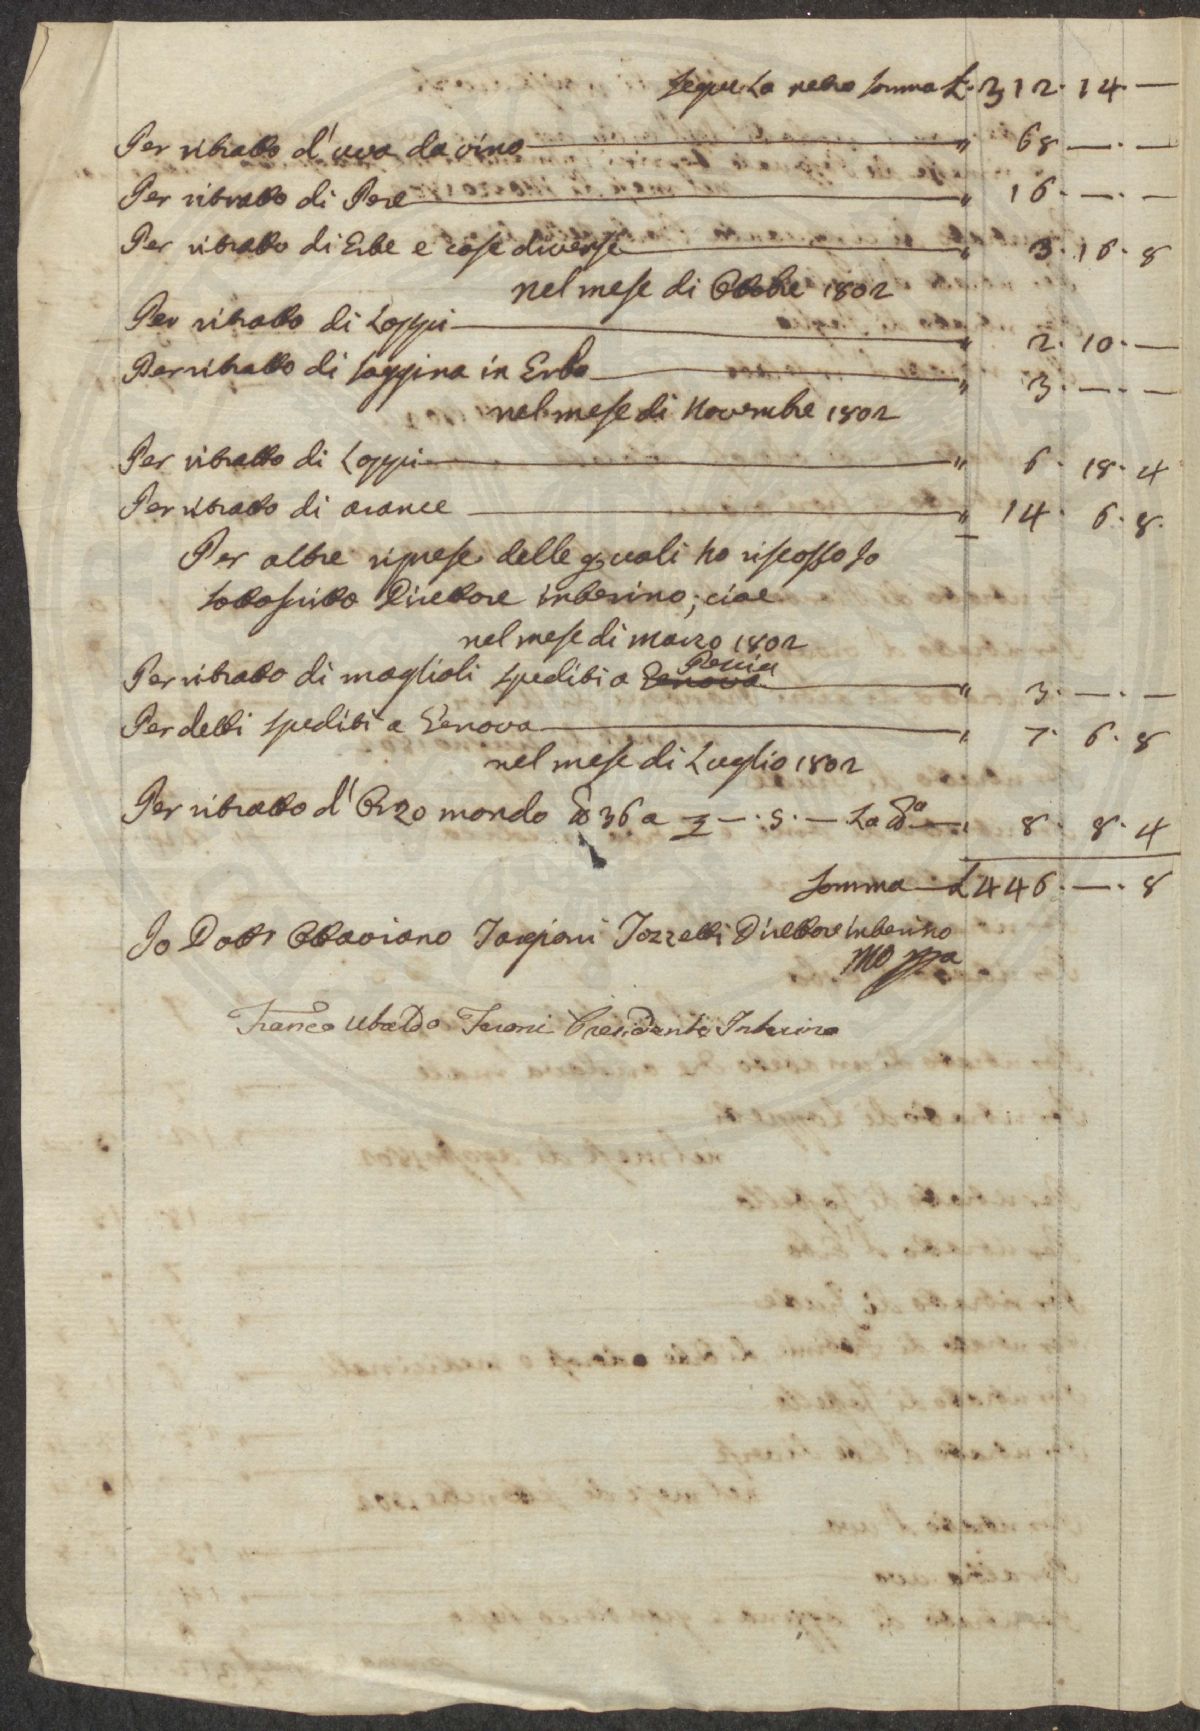 Segue La retro Somma £. 312. 14. —
Per ritratto d'uva da vino — " 68 — . —
Per ritratto di Pere — " 16. — . —
Per ritratto di Erbe e cose diverse — " 3. 16. 8
nel mese di Ottobre 1802
Per ritratto di Loppi — " 2. 10. —
Per ritratto di saggina in Erba — " 3. — . —
nel mese di Novembre 1802
Per ritratto di Loppi — " 6. 18. 4
Per ritratto di arance — " 14. 6. 8.
Per altre riprese delle quali ho riscosso Io
sottoscritto Direttore interino; cioè
nel mese di marzo 1802
Per ritratto di maglioli spediti a Genova Pescia — " 3. — . —
Per detti spediti a Genova — " 7. 6. 8
nel mese di Luglio 1802
Per ritratto d'Orzo mondo 36 a — . 5. — La — " 8. 8. 4
Somma — £ 446. — . 8
Io Dott Ottaviano Targioni Tozzetti Direttore interino
mo ppa
Franco Ubaldo Feroni Presidente Interino